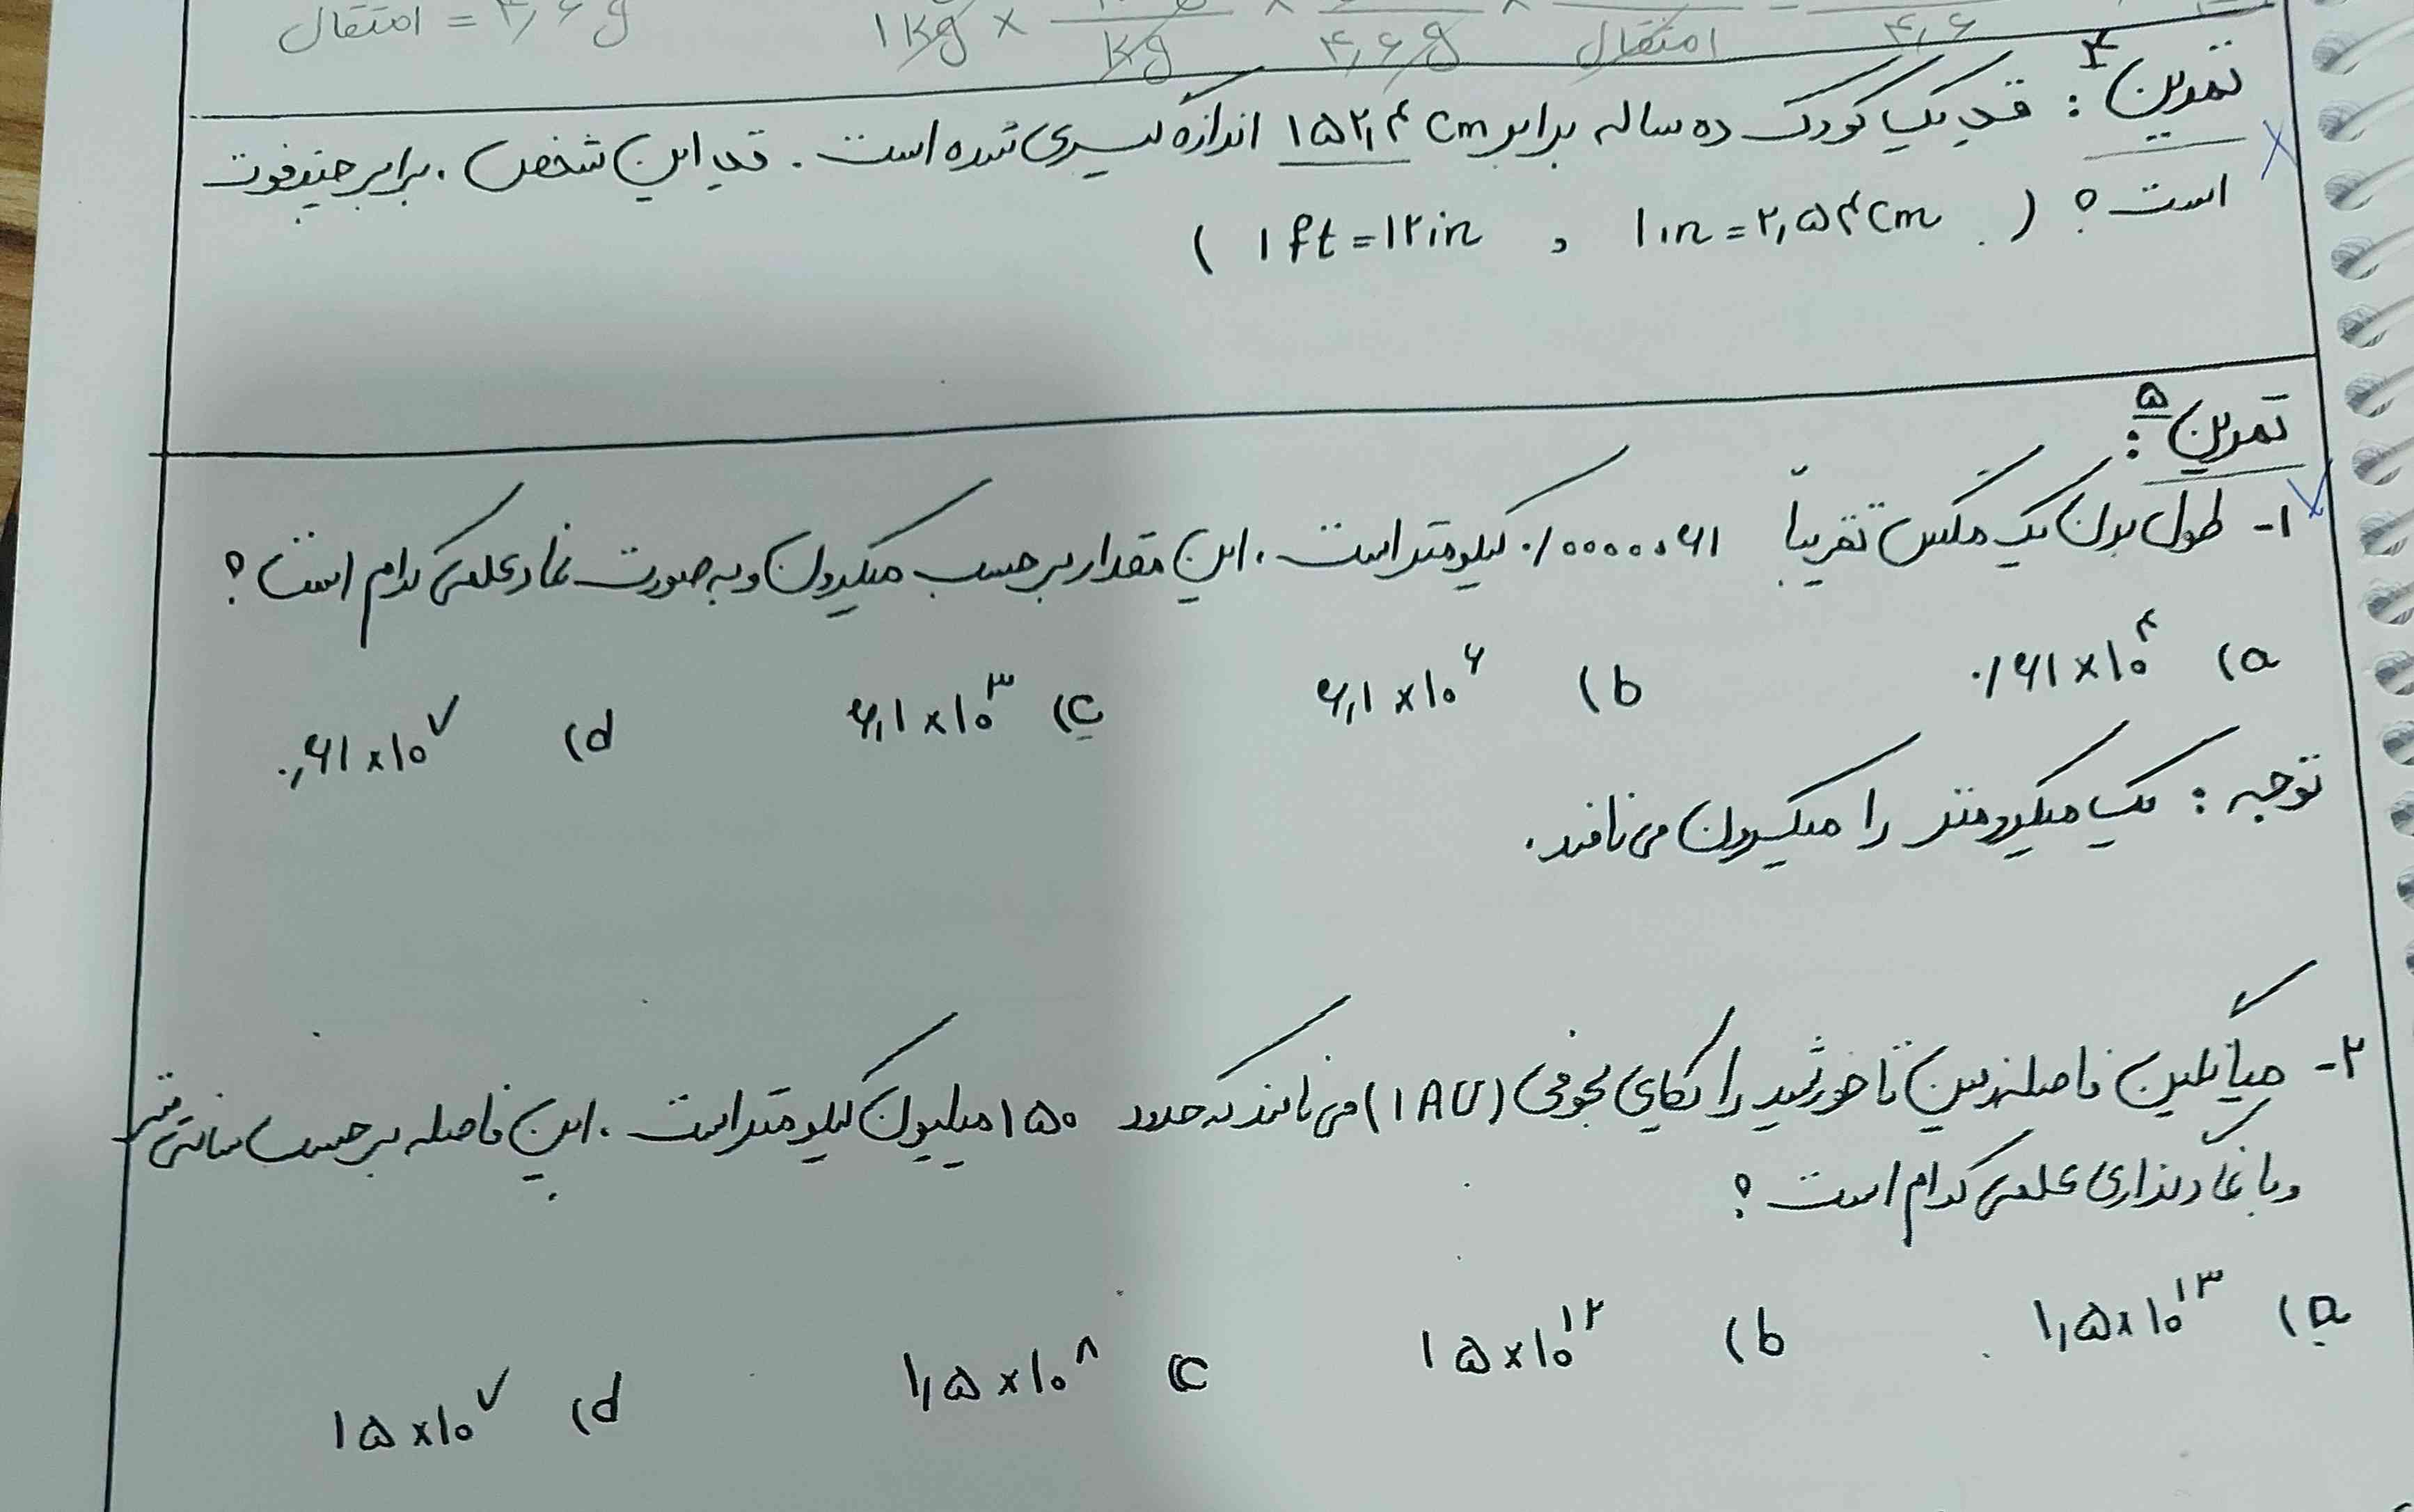 ۱ مثقال = ۴٫۶ g    ۱ kg × kg × ۴٫۶ g × ۱ مثقال = ۴٫۶
تمرین ۴: قد یک کودک ده ساله برابر ۱۵۲٫۴ cm اندازه گیری شده است. قد این شخص، برابر چند فوت
است؟ ( ۱ in = ۲٫۵۴ cm , ۱ ft = ۱۲ in )
تمرین ۵:
۱- طول بدن یک مگس تقریباً ۰/۰۰۰۰۰۶۱ کیلومتر است. این مقدار بر حسب میکرون و به صورت نماد علمی کدام است؟
a) ۰/۶۱ × ۱۰^۴    b) ۶٫۱ × ۱۰^۶    c) ۶٫۱ × ۱۰^۳    d) ۰٫۶۱ × ۱۰^۷
توجه: یک میکرومتر را میکرون می نامند.
۲- میانگین فاصله زمین تا خورشید را یکای نجومی (۱ AU) می نامند که حدود ۱۵۰ میلیون کیلومتر است. این فاصله بر حسب سانتی متر
و با نماد گذاری علمی کدام است؟
a) ۱٫۵ × ۱۰^۱۳    b) ۱۵ × ۱۰^۱۲    c ۱٫۵ × ۱۰^۸    d) ۱۵ × ۱۰^۷